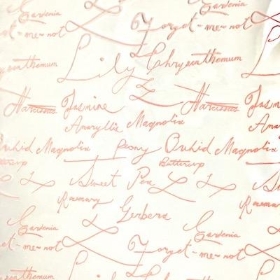 Gardenia
Forget-me-not
Gardenia
Forget-me-not
Chrysanthemum
Lily Chrysanthemum
Jasmine
Amaryllis Magnolia
Orchid Magnolia Peony Orchid Magnolia
Buttercup Buttercup
Sweet Pea
Rosemary
Gerbera
Gardenia
Forget-me-not
Gardenia
Forget-me-not